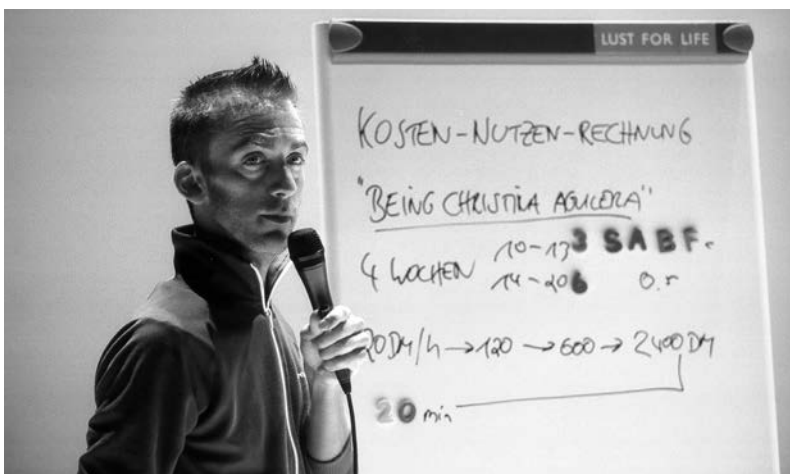 LUST FOR LIFE
KOSTEN-NUTZEN-RECHNUNG
"BEING CHRISTINA AGUILERA"
4 WOCHEN 10-13 3 SABF.
14-20 6
20 DM/h → 120 → 600 → 2400 DM
20 min